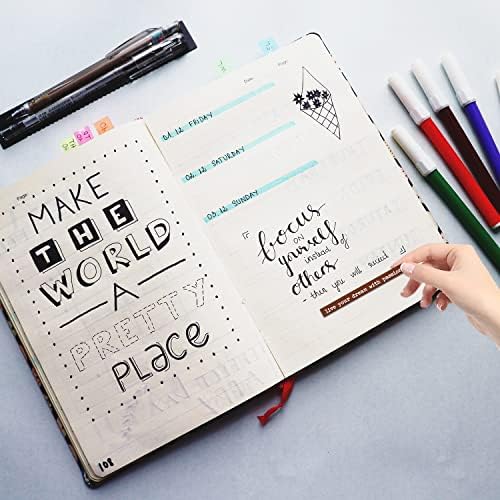 Page:
MAKE
THE
WORLD
A
PRETTY
PLACE
108
Date: Page:
01. 12 FRIDAY
02. 12 SATURDAY
03. 12 SUNDAY
focus
on
yourself
instead of
others
- then you will succeed at
live your dream with passion